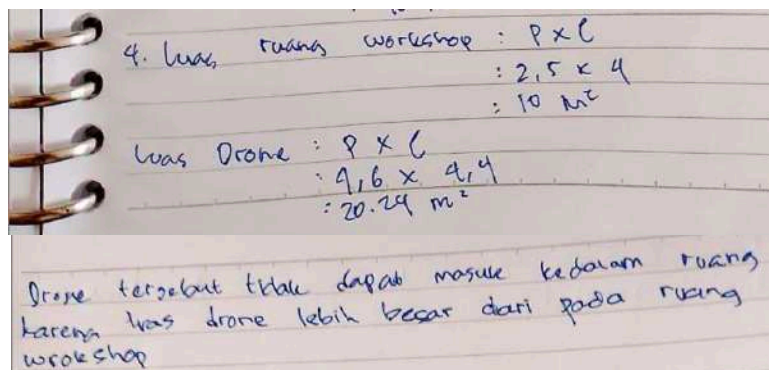 4. luas ruang workshop : P x l
: 2,5 x 4
: 10 m²
luas Drone : P x l
: 4,6 x 4,4
: 20.24 m²
Drone tersebut tidak dapat masuk kedalam ruang
karena luas drone lebih besar dari pada ruang
wrokshop